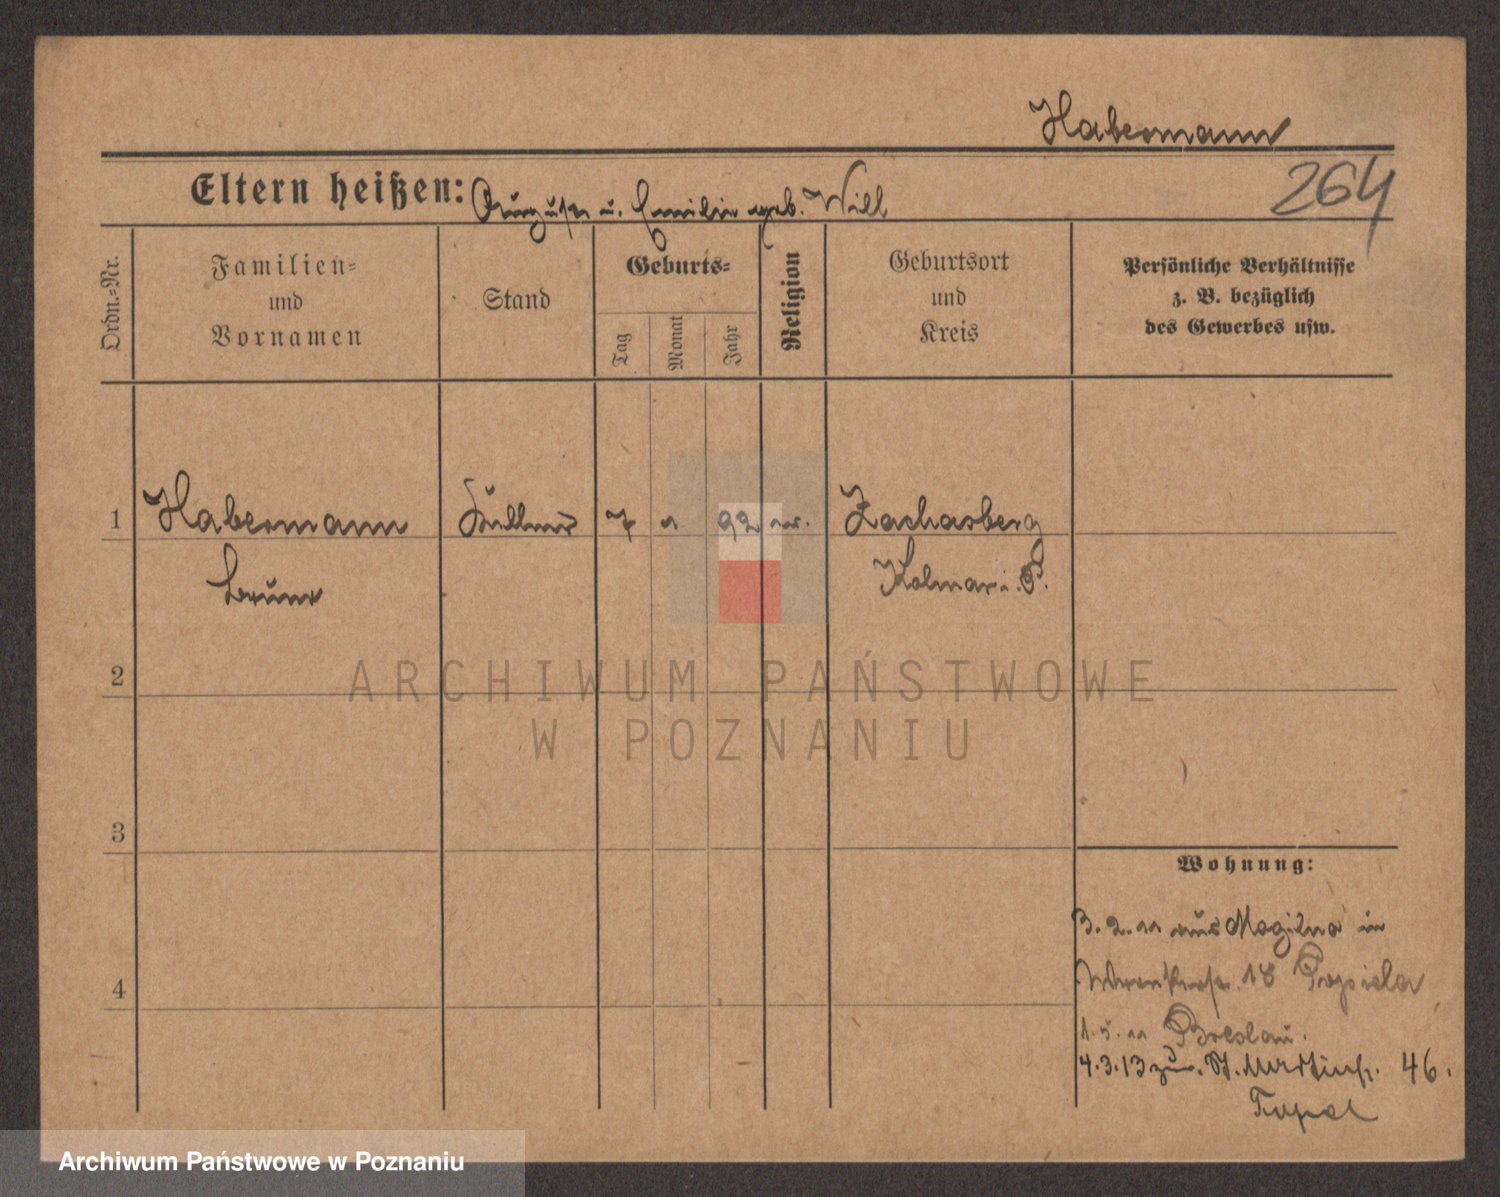 Habermann
264
Eltern heißen: August u. Emilie geb. Will
Ordn.-Nr.
Familien-
und
Vornamen
Stand
Geburts-
Tag
Monat
Jahr
Religion
Geburtsort
und
Kreis
Persönliche Verhältnisse
z. B. bezüglich
des Gewerbes usw.
1 Habermann Kellner 7 1 92 ev. Zachasberg
Bruno Kolmar i. P.
2
3
4
Wohnung:
3. 2. 11 aus Mogilno in
18 Popiela
1. 5. 11 Breslau.
4. 3. 13 zur. St. Martinstr. 46.
ARCHIWUM PAŃSTWOWE
W POZNANIU
Archiwum Państwowe w Poznaniu